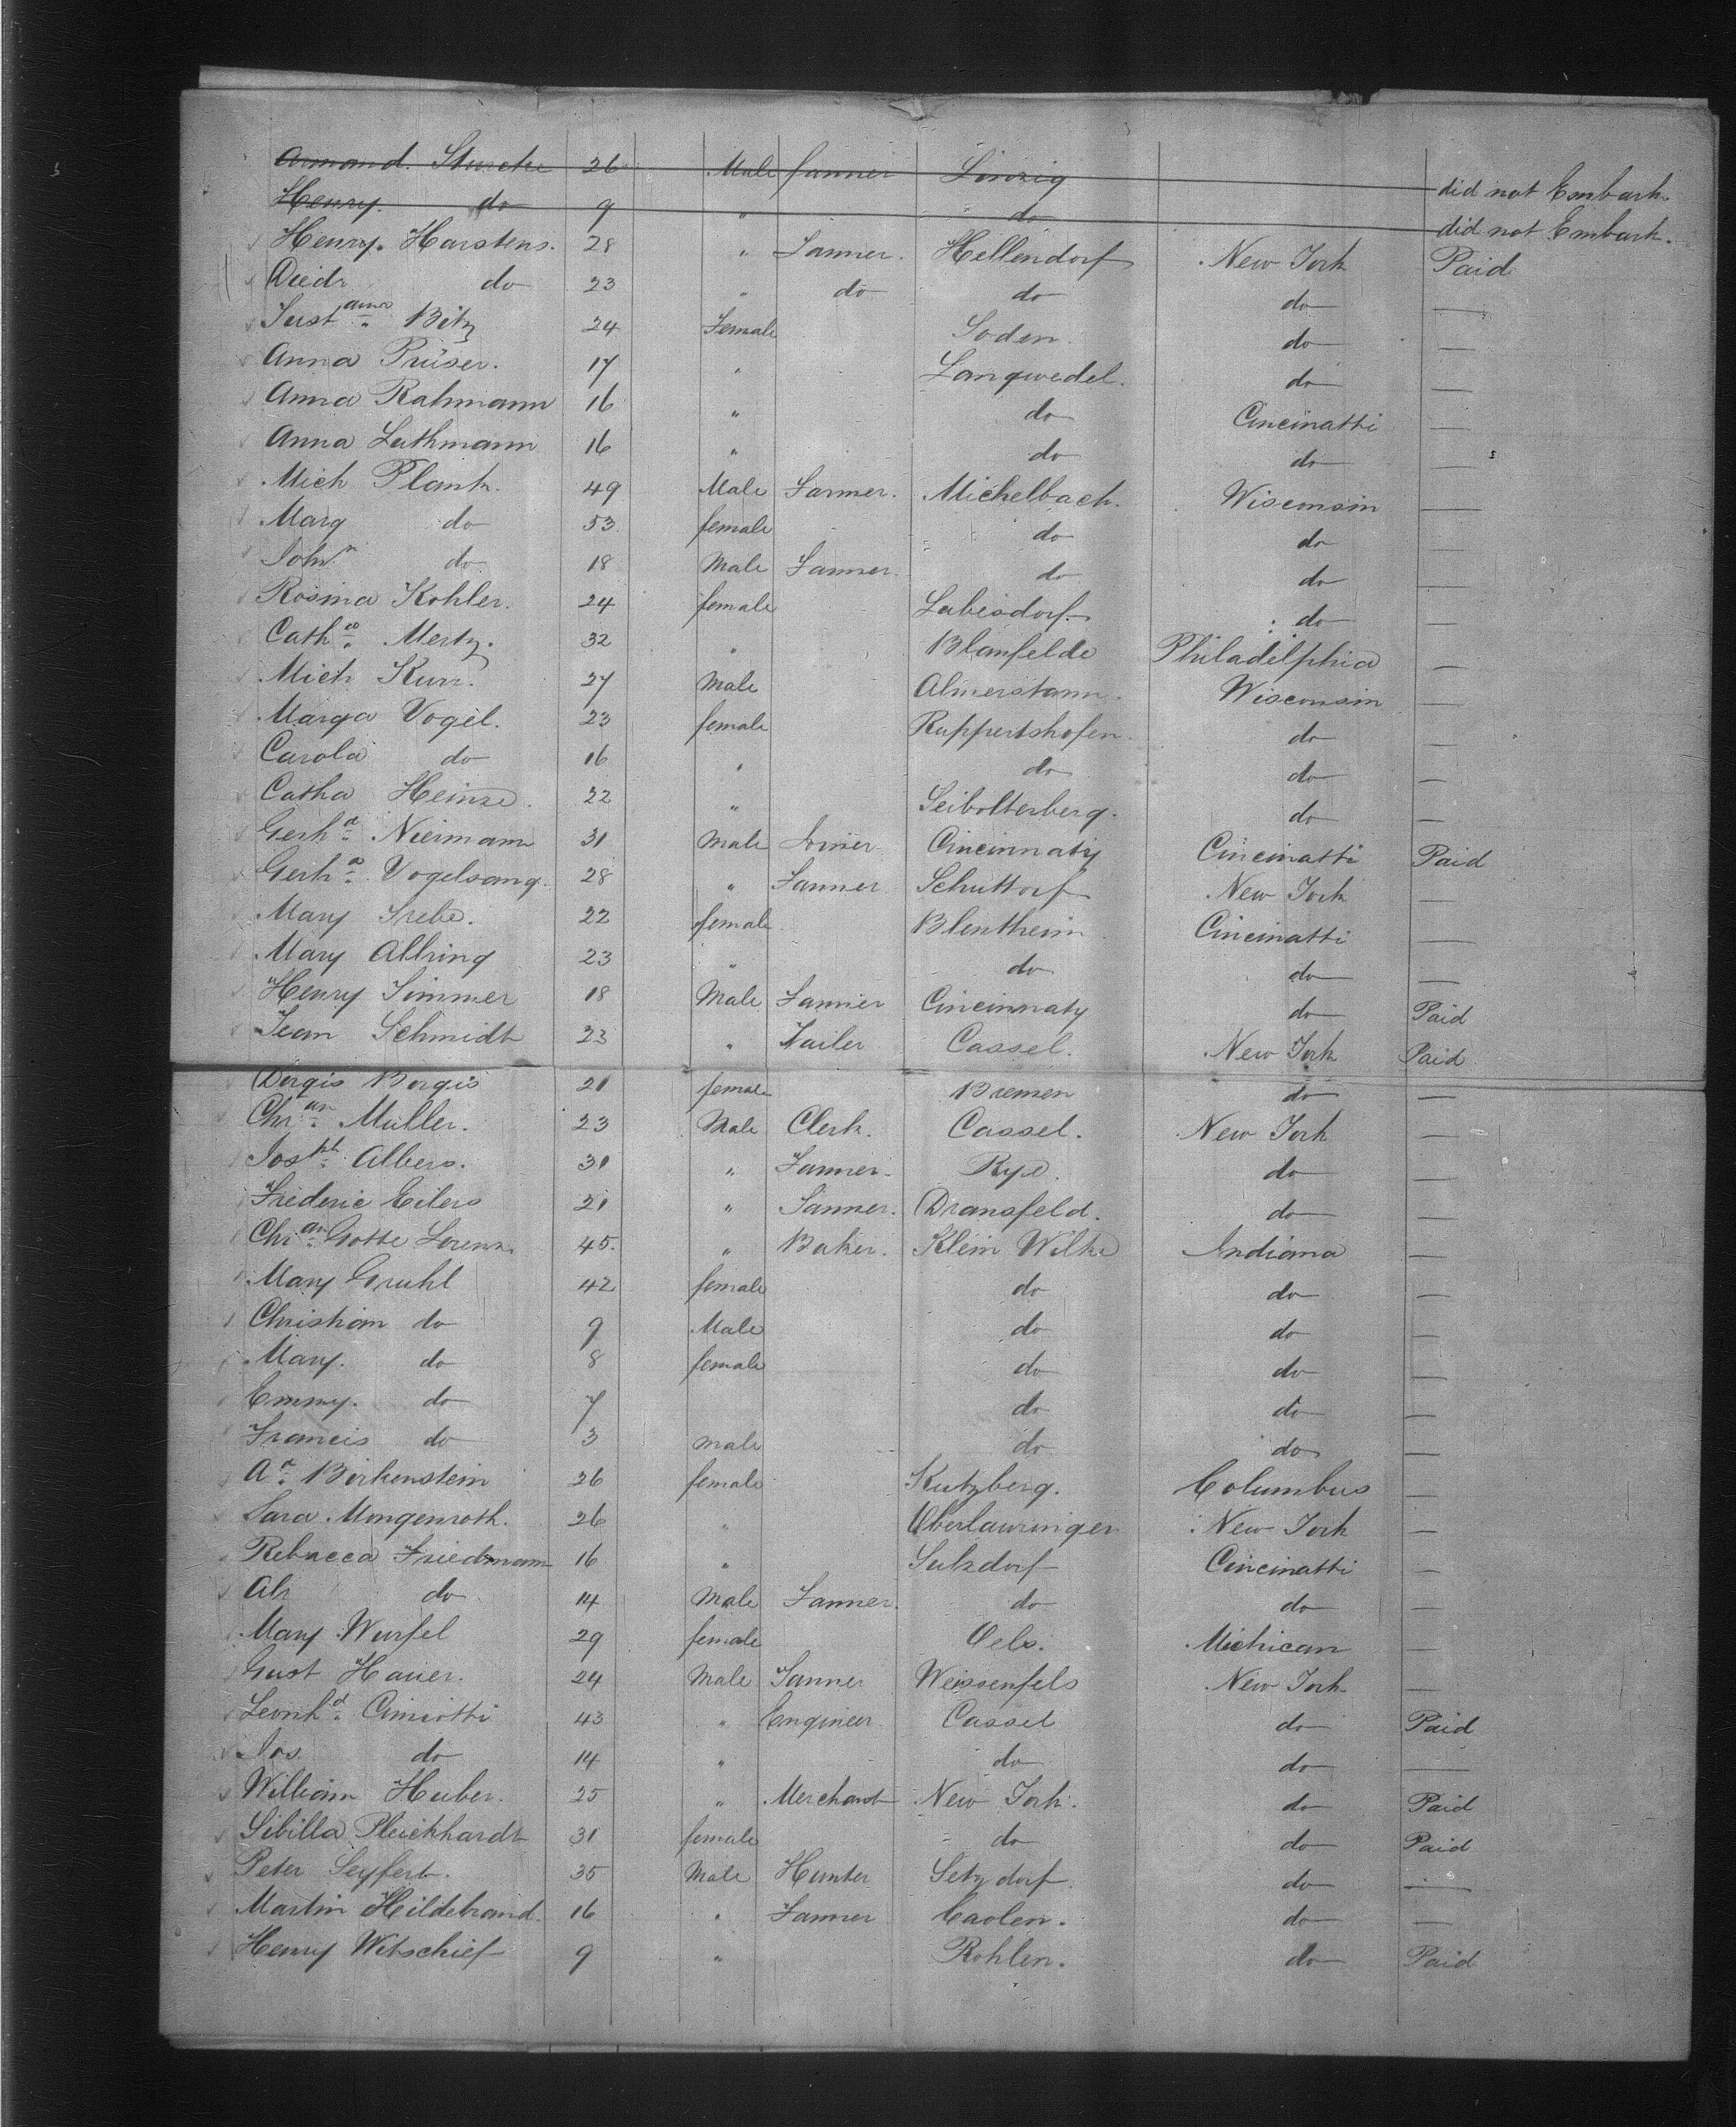 Armand. Sturcke 26 Male farmer Linzig did not Embark.
Henry. do 9 " do did not Embark.
Henry. Harstens. 28 " Farmer. Hellendorf New York Paid
Diedr do 23 " do do do —
Just ama Bitz 24 Female Soden. do —
Anna Prüser. 17 " Langwedel. do —
Anna Rahmann 16 " do Cincinatti —
Anna Lathmann 16 " do do —
Mich Plank. 49 Male Farmer. Michelbach. Wisconsin —
Marg do 53 female do do —
John do 18 Male Farmer. do do —
Rosina Kohler. 24 female Labisdorf. do —
Cath a Mertz. 32 " Blanfelde Philadelphia —
Mich Kurr. 27 Male Almerstann. Wisconsin —
Marga Vogel. 23 female Ruppertshofen. do —
Carola do 16 " do do —
Catha Heinze. 22 " Seibolterberg. do —
Gerh d Niermann 31 Male Cincinnaty Cincinatti Paid
Gerh d Vogelsang. 28 " Farmer Schuttorf New York —
Mary Trebe. 22 female Blentheim Cincinatti —
Mary Albring 23 " do do —
Henry Timmer 18 Male Farmer Cincinnaty do Paid
Jean Schmidt 23 " Tailer Cassel. New York Paid
Dorgis Borgis 21 female Bremen do —
Chr an Muller. 23 Male Clerk. Cassel. New York —
Jos ph Albers. 31 " Farmer. Rye. do —
Frederic Eilers 21 " Farmer. Dransfeld. do —
Chr an Gotte Lorenz. 45. " Baker. Klein Wilke Indiana —
Mary Gruhl 42 female do do —
Christian do 9 Male do do —
Mary. do 8 female do do —
Emmy. do 7 do do —
Francis do 3 male do do —
A a Birkenstein 26 female Kutzberg. Columbus —
Sara Mongenroth. 26 " Oberlauringen New York —
Rebacca Friedmann 16 " Sulzdorf Cincinatti —
Abr do 14 Male Farmer. do do —
Mary Wurfel 29 female Oels. Michican —
Gust Hauer. 24 Male Farmer Weissenfels New York —
Leonh d Cimiotti 43 " Engineer Cassel do Paid
Jos. do 14 " do do —
William Huber. 25 " Merchant New York. do Paid
Sibilla Pleickhardt 31 female do do Paid
Peter Seyfert. 35 Male Hunter Setzdorf. do —
Martin Hildebrand. 16 " Farmer Caolen. do —
Henry Witschief 9 " Rohlen. do Paid